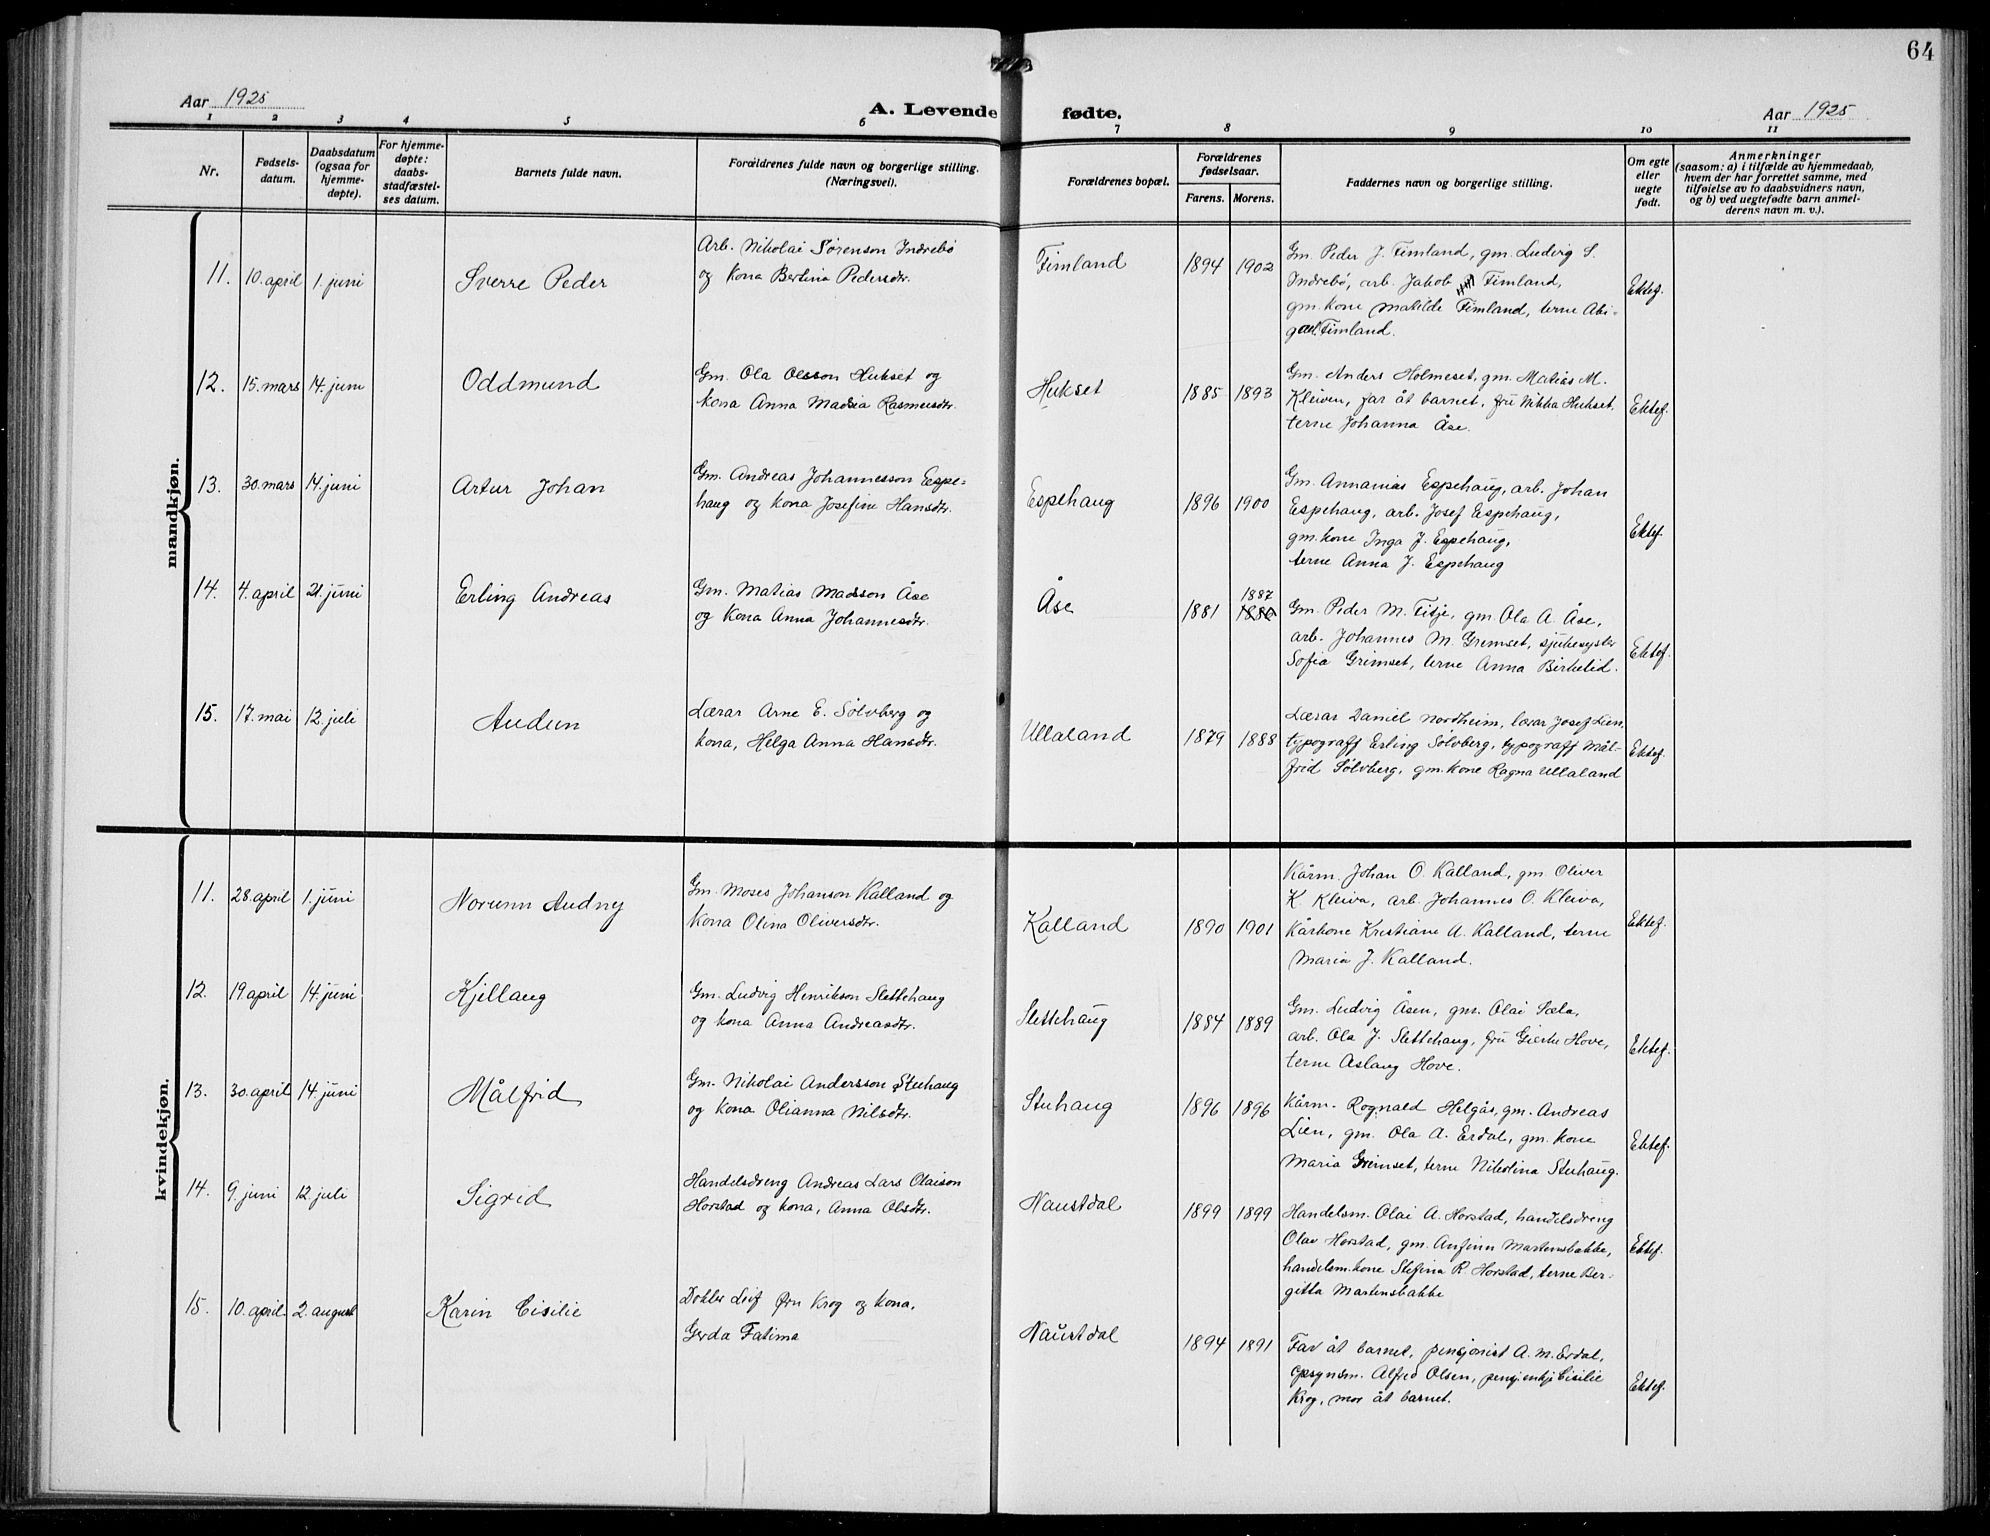 64
Aar 1925
A. Levende fødte.
Aar 1925
1 2 3 4 5 6 7 8 9 10 11
Nr.
Fødsels-
datum.
Daabsdatum
(ogsaa for
hjemme-
døpte).
For hjemme-
døpte:
daabs-
stadfæstel-
ses datum.
Barnets fulde navn.
Forældrenes fulde navn og borgerlige stilling.
(Næringsvei).
Forældrenes bopæl.
Forældrenes
fødselsaar.
Farens. Morens.
Faddernes navn og borgerlige stilling.
Om egte
eller
uegte
født.
Anmerkninger
(saasom: a) i tilfælde av hjemmedaab,
hvem der har forrettet samme, med
tilføielse av to daabsvidners navn,
og b) ved uegtefødte barn anmel-
derens navn m. v.).
mandkjøn.
11. 10. april 1. juni Sverre Peder
Arb. Nikolai Sørenson Indrebø
og kona Bertina Pedersdtr.
Fimland 1894 1902
Gm. Peder J. Fimland, gm. Ludvig S.
Indrebø, arb. Jakob Fimland,
gm. kone Matilde Fimland, terne Abi-
gael Fimland.
Ektef.
12. 15. mars 14. juni Oddmund
Gm. Ola Olsson Hukset og
kona Anna Madsia Rasmusdtr.
Hukset 1885 1893
Gm. Anders Holmeset, gm. Matias M.
Kleiven, far åt barnet, fru Nikka Hukset,
terne Johanna Åse.
Ektef.
13. 30. mars 14. juni Artur Johan
Gm. Andreas Johannesson Espe-
haug og kona Josefine Hansdtr.
Espehaug 1896 1900
Gm. Annanias Espehaug, arb. Johan
Espehaug, arb. Josef Espehaug,
gm. kone Inga J. Espehaug,
terne Anna J. Espehaug
Ektef.
14. 4. april 21. juni Erling Andreas
Gm. Matias Madsson Åse
og kona Anna Johannesdtr.
Åse 1881 1887
Gm. Peder M. Fitje, gm. Ola A. Åse,
arb. Johannes M. Gremset, sjukesyster
Sofia Grimset, terne Anna Birkelid.
Ektef.
15. 17. mai 12. juli Audun
Lærar Arne E. Sølvberg og
kona, Helga Anna Hansdtr.
Ullaland 1879 1888
Lærar Daniel Nordheim, lærar Josef Lien,
typograff Erling Sølvberg, typograff Mål-
frid Sølvberg, gm. kone Ragna Ullaland
Ektef.
kvindekjøn.
11. 28. april 1. juni Norunn Audny
Gm. Moses Johanson Kalland og
kona Olina Oliversdtr.
Kalland 1890 1901
Kårm. Johan O. Kalland, gm Oliver
K. Kleiva, arb. Johannes O. Kleiva,
Kårkone Kristiane A. Kalland, terne
Maria J. Kalland.
Ektef.
12. 19. april 14. juni Kjellaug
Gm. Ludvig Henrikson Slettehaug
og kona Anna Andreasdtr.
Slettehaug 1884 1889
Gm. Ludvig Åsen, gm. Olai Sæla,
arb. Ola J. Slettehaug, fru Gjertie Hove,
terne Aslaug Hove.
Ektef.
13. 30. april 14. juni Målfrid
Gm. Nikolai Andersson Stuhaug
og kona Olianna Nilsdtr.
Stuhaug 1896 1896
Kårm. Rognald Helgås, gm. Andreas
Lien, gm. Ola A. Erdal, gm. kone
Maria Grimset, terne Nikolina Stuhaug.
Ektef.
14. 9. juni 12. juli Sigrid
Handelsdreng Andreas Lars Olaison
Horstad og kona, Anna Olsdtr.
Naustdal 1899 1899
Handelsm. Olai A. Horstad, handelsdreng
Olav Horstad, gm. Anfinn Martensbakke,
handelsm. kone Stefina R. Horstad, terne Ber-
gitta Martensbakke
Ektef.
15. 10. april. 2. august Karin Cisilie
Dokter Leif Ørn Krog og kona,
Gerda Fatima
Naustdal 1894 1891
Far åt barnet, pensjonist A. M. Erdal,
opsynsm. Alfred Olsen, pensj. enkje Cisilie
Krog, mor åt barnet.
Ektef.